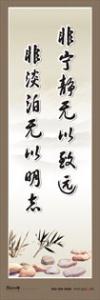 非宁静无以致远
非淡泊无以明志